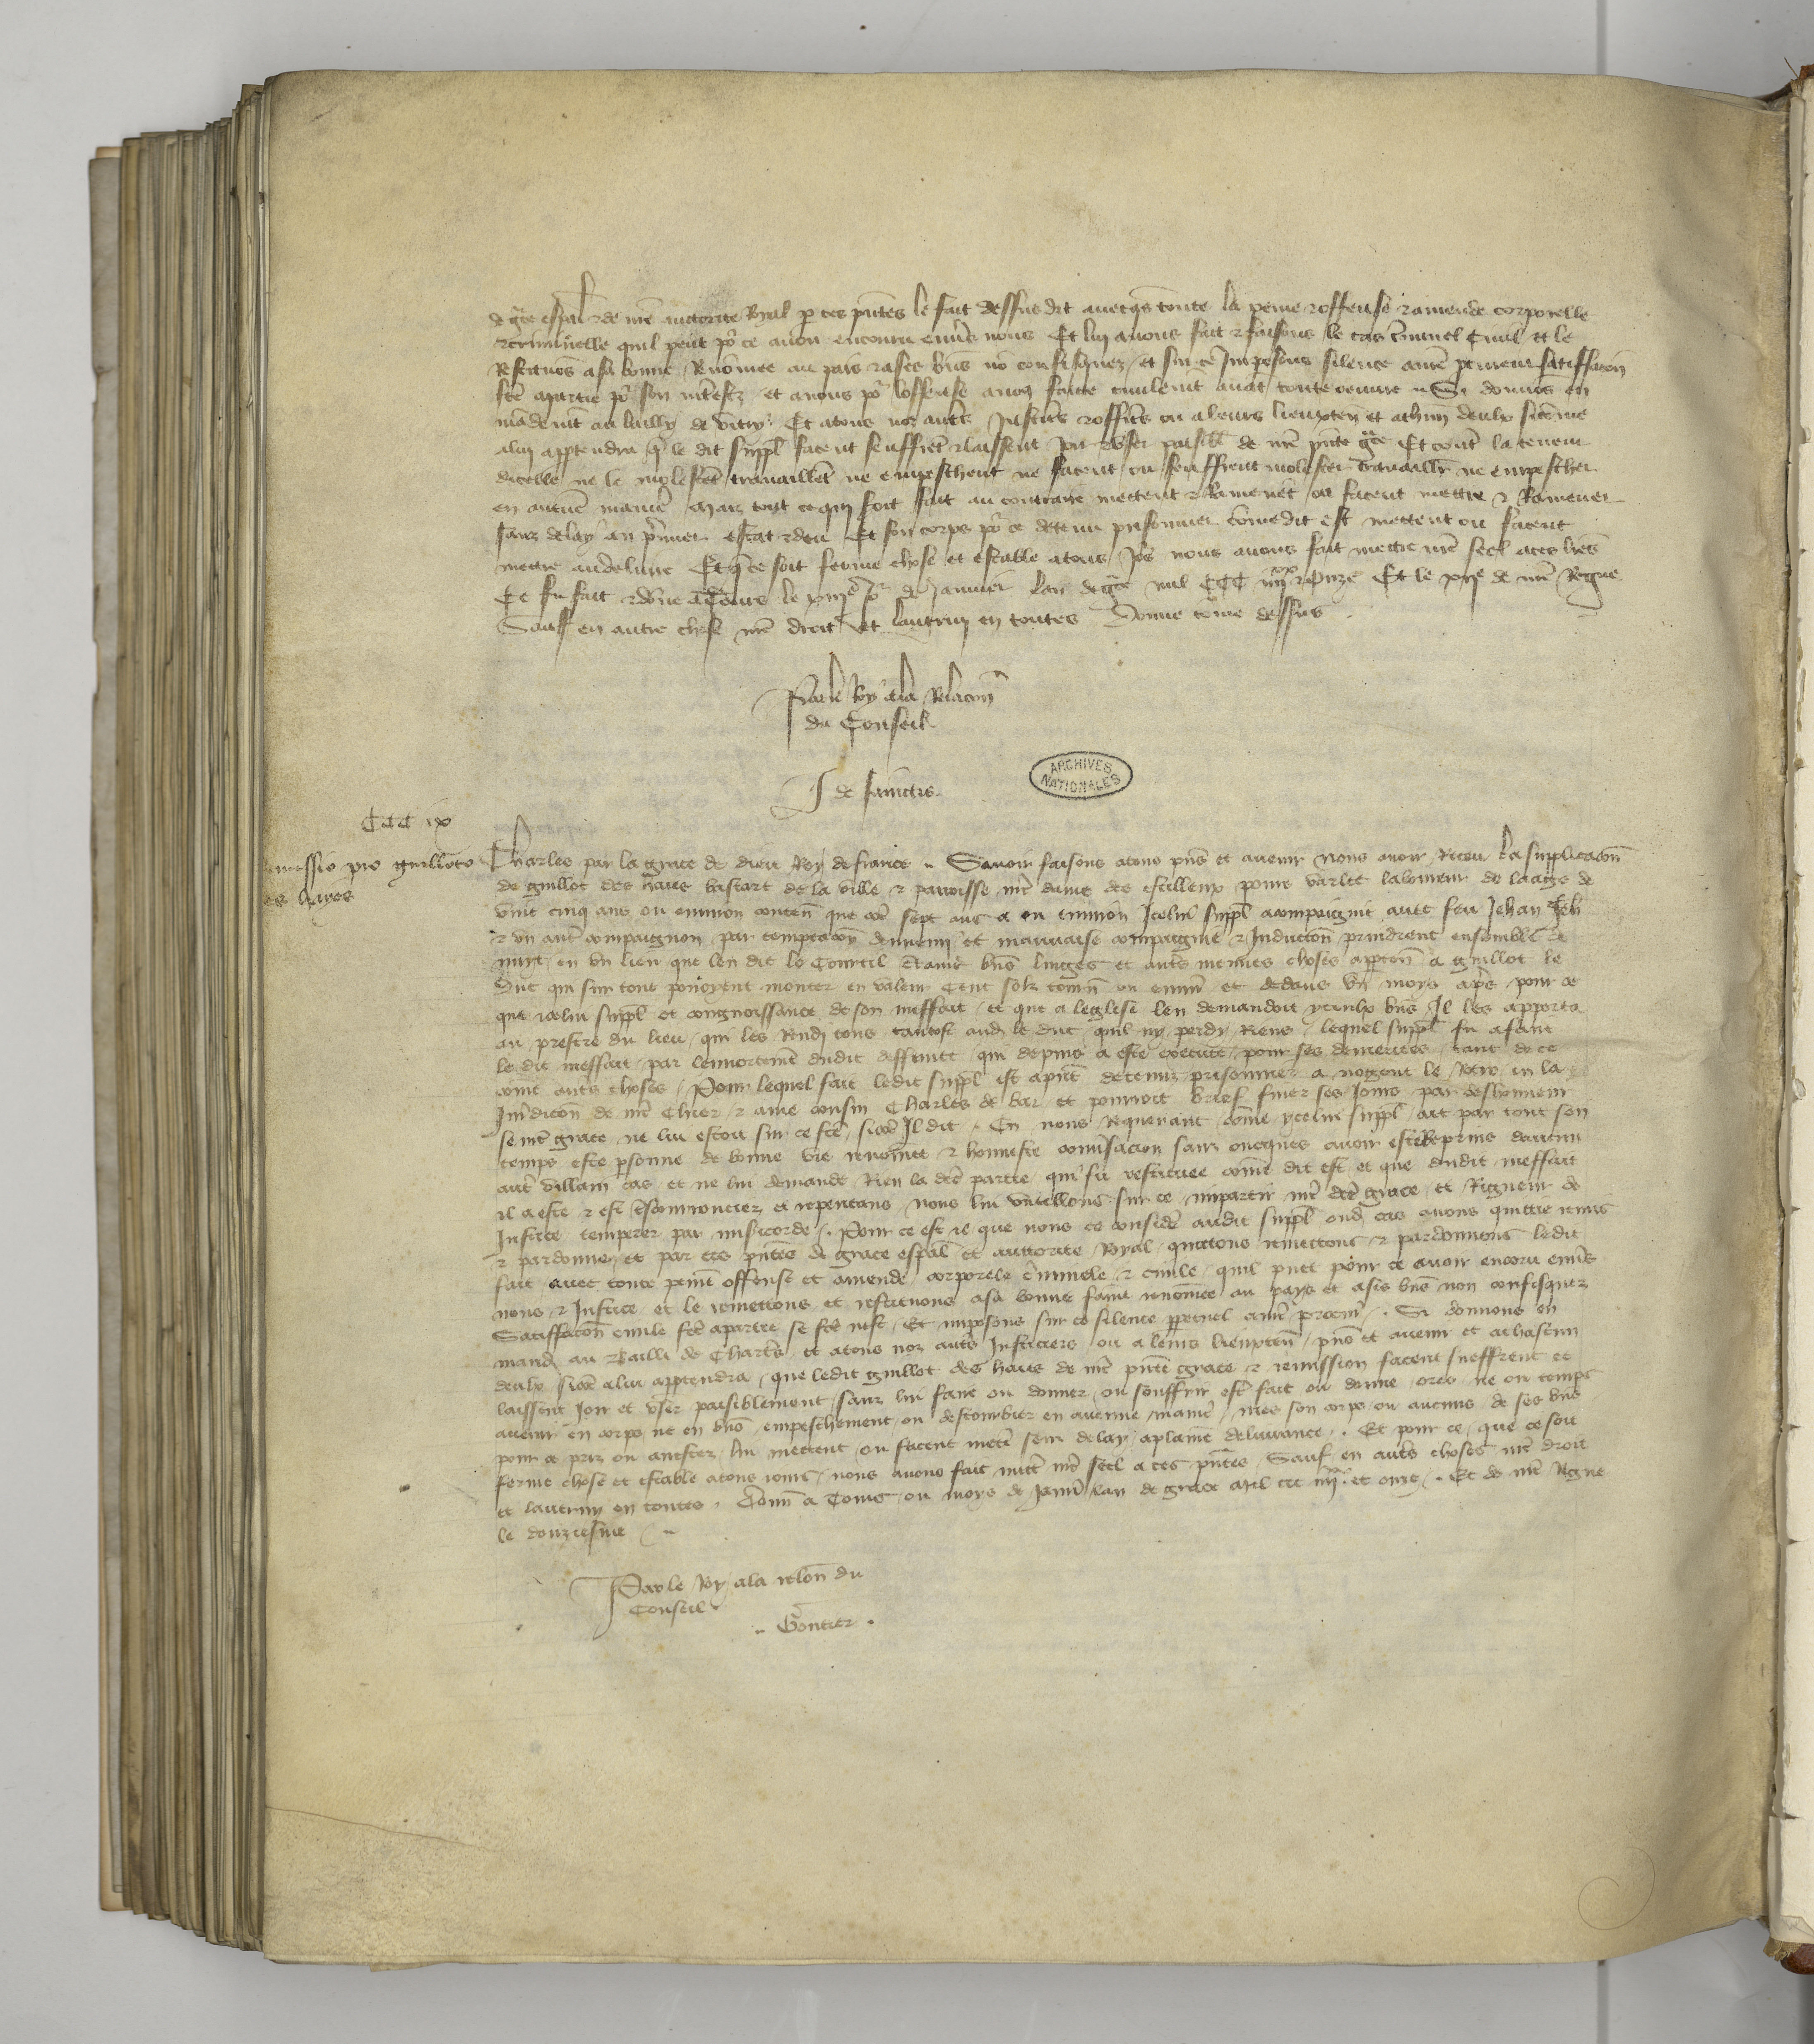 de gce espal & de nre auctorite Royal p ces pntes le fait dessus dit avecqs toute la peine & offense & amende corporelle
& criminelle quil peut po ce avoir encouru envs nous Et lui avons fait & faisons le cas criminel civil et le
Restituos a sa bonne Renomee au pais & a ses bns no confisquez et sur ce Imposons silence satisfacon
fce a partie po son et avons po loffense civilemt avat toute euvre Si donnos en
mademt au bailly de vitry Et a tous noz autrs Justicrs & officrs ou a leurs lieuxten et a chun deulx si come
a lui apptendra q le dit suppl facent seuffret & laissent Joir & user paisibl de nre pnte gce Et cont la teneur
dicelle ne le molestet travaillet ne empeschent ne facent ou seuffrent molester travaillr ne empescher
en aucune manie mais tout ce qui soit fait au contraire mettent & Ramenet ou facent mettre & Ramener
sanz delay au prmier estat & deu Et son corps po ce detenu prisonnier come dit est mettent ou facent
mettre au delivre Et q ce soit ferme chose et estable a tous Jos nous avons fait mettre nre seel a ces lres
Ce fu fait & done a Tours le xiije Jo de Janvier lan de gce mil CCC iiijxx & Onze Et le xije de nre Regne
Sauf en autre chose nre droit et lautruy en toutes Donne come dessus
Par le Roy a la Relacon
du Conseil
J de sanctis
ARCHIVES
NATIONALES
CCC ix
missio pro guilloto
es hayes
Charles par la grace de dieu Roy de france Savoir faisons a tous pns et avenir Nous avoir Receu la supplicacon
de guillot des haies bastart de la ville & parroisse nre dame des povre varlet laboureur de laage de
vint cinq ans ou environ conten que come sept ans a ou environ Icelui suppl acompaignie avec feu Jehan
& un autre compaignon par temptacon dennemi et mauvaise compaignie & Induction prindrent ensemble de
nuyt en un lieu que len dit le Courtil certains bns linges et autrs menues choses apparten a guillot le
Duc qui sur tout povoyent monter en valeur Cent solz tourn ou environ et dedans un moys apres pour ce
que icelui suppl et congnoissance de son meffait et que a leglise len demandoit yceulx bns Il les apporta
au prestre du lieu qui les Rendi tous tantost aud le duc quil ny perdi Riens lequel suppl fu a faire
le dit meffait par lennortement dudit deffunct qui depuis a este execute pour ses demerites tant de ce
come autrs choses Pour lequel fait ledit suppl est a pnt detenuz prisonnier a nogent le Rotro en la
Juridicon de nre Chier & ame cousin Charles de bar et pourroit brief finer ses Jours par deshonneur
se nre grace ne lui estoit sur ce fce sicome Il dit En nous Requerant come ycelui suppl ait par tout son
temps este psonne de bonne vie renomee & honneste conversacion sanz oncques avoir este Reprins daucun
autre villain cas et ne lui demande Rien la dce partie qui fu restituee come dit est et que dudit meffait
il a este & est couroucez et repentans nous lui vueillons sur ce impartir nre dce grace et Rigueur de
Justice temperer par misericorde Pour ce est il que nous ce considere audit suppl oud cas avons quictie remis
& pardonne et par ces pntes de grace espal et auttorite Royal quictons remettons & pardonnons ledit
fait avec toute peine offense et amende corporele criminele & civile quil puet pour ce avoir encoru envrs
nous & Justice et le remettons et restituons a sa bonne fame renomee au pays et a ses bns non confisquez
Satisfacon civile fce a partie se fce nest Et imposons sur ce silence perpetuel a nre procur Si donnons en
mand au Bailli de Chartrs et a tous noz autrs Justiciers ou a leurs lieuxten pns et avenir et a chascun
deulx sicome a lui appartendra que ledit guillot des haies de nre pnte grace & remission facent sueffrent et
laissent Joir et user paisiblement sanz lui faire ou donner ou souffrir estre fait ou donne ores ne ou temps
avenir en corps ne en bns empeschement ou destourbier en aucune manie mes son corps ou aucuns de ses bns
pour ce priz ou arrestez lui mettent ou facent mettre senz delay a plaine delivrance Et pour ce que ce soit
ferme chose et estable a tous jours nous avons fait mettre nre seel a ces pntes Sauf en autrs choses nre droit
et lautruy en toutes Donn a Tours ou moys de Janvr lan de grace mil ccc iiijxx et onze Et de nre Regne
le douziesme
Par le Roy a la relon du
Conseil
Gontier